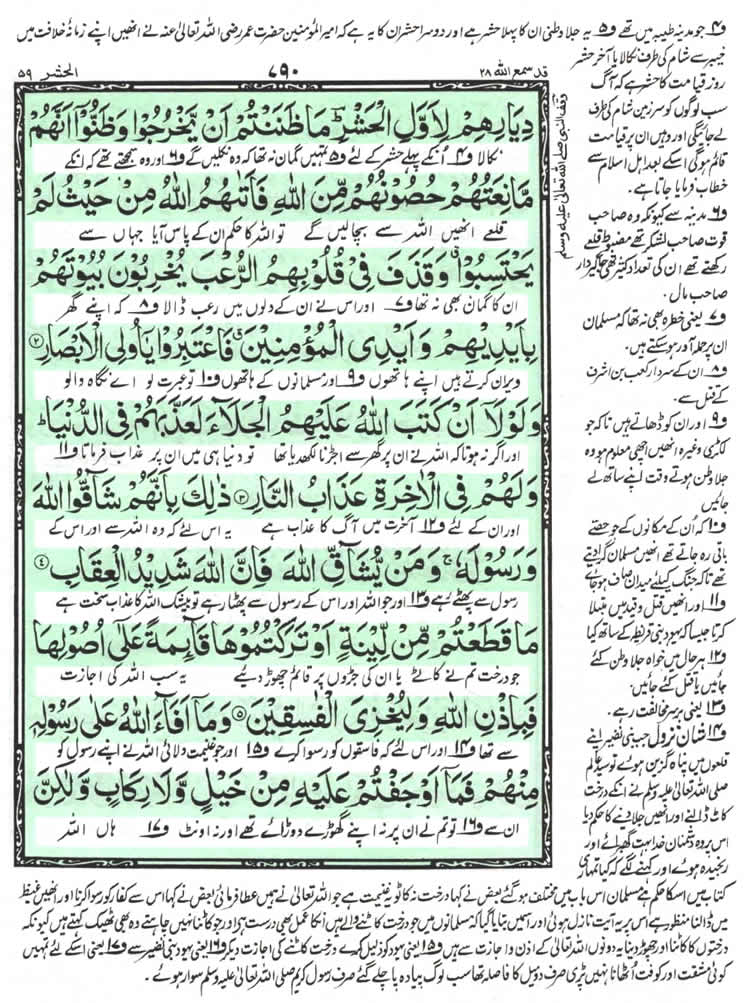 ف۴ جو مدینہ طیبہ میں تھے ف۵ یہ جلا وطنی ان کا پہلا حشر ہے اور دوسرا حشر ان کا یہ ہے کہ امیر المؤمنین حضرت عمر رضی اللہ تعالیٰ عنہ نے انھیں اپنے زمانۂ خلافت میں
خیبر سے شام کی طرف نکالا یا آخر حشر
روز قیامت کا حشر ہے کہ آگ
سب لوگوں کو سرزمین شام کی طرف
لے جائیگی اور وہیں ان پر قیامت
قائم ہوگی اسکے بعد اہل اسلام سے
خطاب فرمایا جاتا ہے۔
ف۶ مدینہ سے کیونکہ وہ صاحب
قوت صاحب لشکر تھے مضبوط قلعے
رکھتے تھے ان کی تعداد کثیر تھی جاگیردار
صاحب مال۔
ف۷ یعنی خطرہ بھی نہ تھا کہ مسلمان
ان پر حملہ آور ہوسکتے ہیں۔
ف۸ ان کے سردار کعب بن اشرف
کے قتل سے۔
ف۹ اور ان کو ڈھاتے ہیں تاکہ جو
لکڑی وغیرہ انھیں اچھی معلوم ہو وہ
جلا وطن ہوتے وقت اپنے ساتھ لے
جائیں
ف۱۰ کہ اُن کے مکانوں کے جو حصّے
باقی رہ جاتے تھے انھیں مسلمان گرا دیتے
تھے تاکہ جنگ کیلئے میدان صاف ہوجائے
ف۱۱ اور انھیں قتل و قید میں مبتلا
کرتا جیسا کہ یہود بنی قریظہ کے ساتھ کیا
ف۱۲ ہر حال میں خواہ جلا وطن کئے
جائیں یا قتل کئے جائیں۔
ف۱۳ یعنی برسر مخالفت رہے۔
ف۱۴ شان نزول جب بنی نضیر اپنے
قلعوں میں پناہ گزین ہوئے تو سید عالم
صلی اللہ تعالیٰ علیہ وسلم نے انکے درخت
کاٹ ڈالنے اور انھیں جلا دینے کا حکم دیا
اس پر وہ دشمنان خدا بہت گھبرائے اور
رنجیدہ ہوئے اور کہنے لگے کہ کیا تمہاری
قد سمع اللہ ۲۸
۷۹۰
الحشر ۵۹
وقف النبی صلی اللہ تعالیٰ علیہ وسلم
دِيَارِهِمْ لِاَوَّلِ الْحَشْرِ ؔ مَا ظَنَنْتُمْ اَنْ يَّخْرُجُوْا وَظَنُّوْۤا اَنَّهُمْ
نکالا ف۴ اُنکے پہلے حشر کے لئے ف۵ تمہیں گمان نہ تھا کہ وہ نکلیں گے ف۶ اور وہ سمجھتے تھے کہ انکے
مَّانِعَتُهُمْ حُصُوْنُهُمْ مِّنَ اللّٰهِ فَاَتٰىهُمُ اللّٰهُ مِنْ حَيْثُ لَمْ
قلعے انھیں اللہ سے بچالیں گے تو اللہ کا حکم ان کے پاس آیا جہاں سے
يَحْتَسِبُوْا ۗ وَقَذَفَ فِيْ قُلُوْبِهِمُ الرُّعْبَ يُخْرِبُوْنَ بُيُوْتَهُمْ
ان کا گمان بھی نہ تھا ف۷ اور اس نے ان کے دلوں میں رعب ڈالا ف۸ کہ اپنے گھر
بِاَيْدِيْهِمْ وَاَيْدِي الْمُؤْمِنِيْنَ ۗ فَاعْتَبِرُوْا يٰۤاُولِي الْاَبْصَارِ ۝۲
ویران کرتے ہیں اپنے ہاتھوں ف۹ اور مسلمانوں کے ہاتھوں ف۱۰ تو عبرت لو اے نگاہ والو
وَلَوْلَاۤ اَنْ كَتَبَ اللّٰهُ عَلَيْهِمُ الْجَلَآءَ لَعَذَّبَهُمْ فِي الدُّنْيَا ؕ
اور اگر نہ ہوتا کہ اللہ نے ان پر گھر سے اجڑنا لکھ دیا تھا تو دنیا ہی میں ان پر عذاب فرماتا ف۱۱
وَلَهُمْ فِي الْاٰخِرَةِ عَذَابُ النَّارِ ۝۳ ذٰلِكَ بِاَنَّهُمْ شَآقُّوا اللّٰهَ
اور ان کے لئے ف۱۲ آخرت میں آگ کا عذاب ہے یہ اس لئے کہ وہ اللہ سے اور اس کے
وَرَسُوْلَهٗ ۚ وَمَنْ يُّشَآقِّ اللّٰهَ فَاِنَّ اللّٰهَ شَدِيْدُ الْعِقَابِ ۝۴
رسول سے پھٹے رہے ف۱۳ اور جو اللہ اور اس کے رسول سے پھٹا رہے تو بیشک اللہ کا عذاب سخت ہے
مَا قَطَعْتُمْ مِّنْ لِّيْنَةٍ اَوْ تَرَكْتُمُوْهَا قَآئِمَةً عَلٰۤى اُصُوْلِهَا
جو درخت تم نے کاٹے یا ان کی جڑوں پر قائم چھوڑ دیئے یہ سب اللہ کی اجازت
فَبِاِذْنِ اللّٰهِ وَلِيُخْزِيَ الْفٰسِقِيْنَ ۝۵ وَمَاۤ اَفَآءَ اللّٰهُ عَلٰى رَسُوْلِهٖ
سے تھا ف۱۴ اور اس لئے کہ فاسقوں کو رسوا کرے ف۱۵ اور جو غنیمت دلائی اللہ نے اپنے رسول کو
مِنْهُمْ فَمَاۤ اَوْجَفْتُمْ عَلَيْهِ مِنْ خَيْلٍ وَّلَا رِكَابٍ وَّلٰكِنَّ
ان سے ف۱۶ تو تم نے ان پر نہ اپنے گھوڑے دوڑائے تھے اور نہ اونٹ ف۱۷ ہاں اللہ
کتاب میں اسکا حکم ہے مسلمان اس باب میں مختلف ہوگئے بعض نے کہا درخت نہ کاٹو یہ غنیمت ہے جو اللہ تعالیٰ نے ہمیں عطا فرمائی بعض نے کہا اس سے کفار کو رسوا کرنا اور انھیں غیظ
میں ڈالنا منظور ہے اس پر یہ آیت نازل ہوئی اور اسمیں بتایا گیا کہ مسلمانوں میں جو درخت کاٹنے والے ہیں انکا عمل بھی درست ہے اور جو کاٹنا نہیں چاہتے وہ بھی ٹھیک کہتے ہیں کیونکہ
درختوں کا کاٹنا اور چھوڑ دینا یہ دونوں اللہ تعالیٰ کے اذن و اجازت سے ہیں ف۱۵ یعنی یہود کو ذلیل کرے درخت کاٹنے کی اجازت دیکر ف۱۶ یعنی یہود بنی نضیر سے ف۱۷ یعنی اسکے لئے تمہیں
کوئی مشقت اور کوفت اٹھانا نہیں پڑی صرف دو میل کا فاصلہ تھا سب لوگ پیادہ پا چلے گئے صرف رسول کریم صلی اللہ تعالیٰ علیہ وسلم سوار ہوئے۔